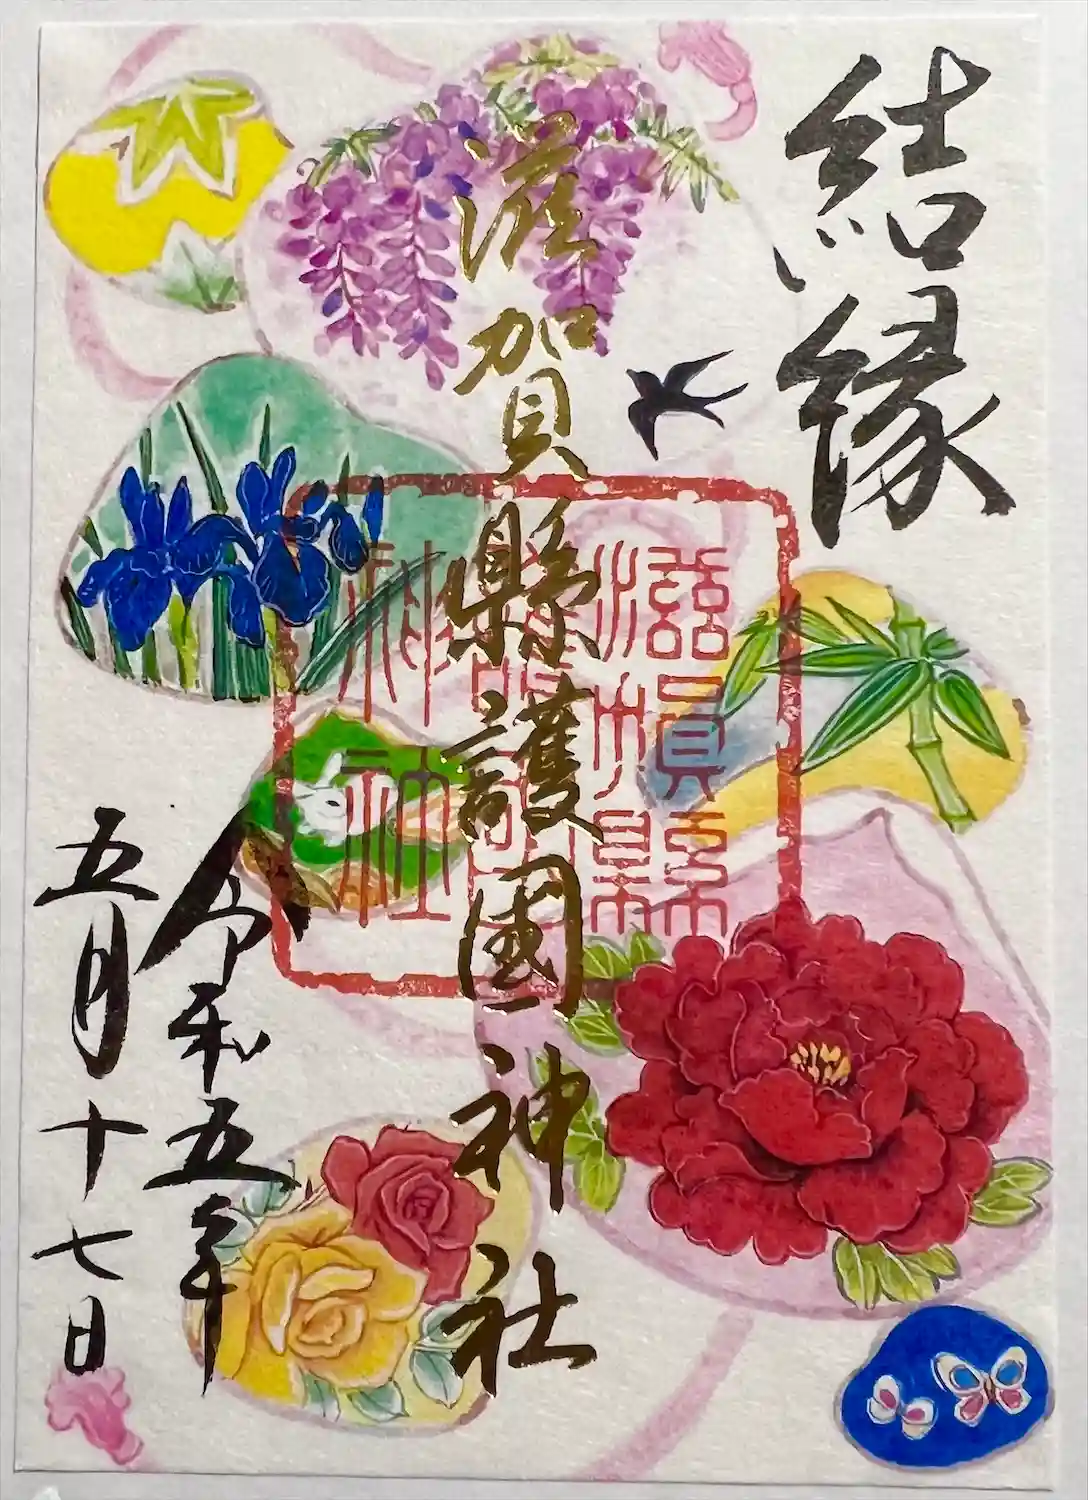 結縁
滋賀縣護国神社
令和五年
五月十七日
滋賀縣
護国
神社